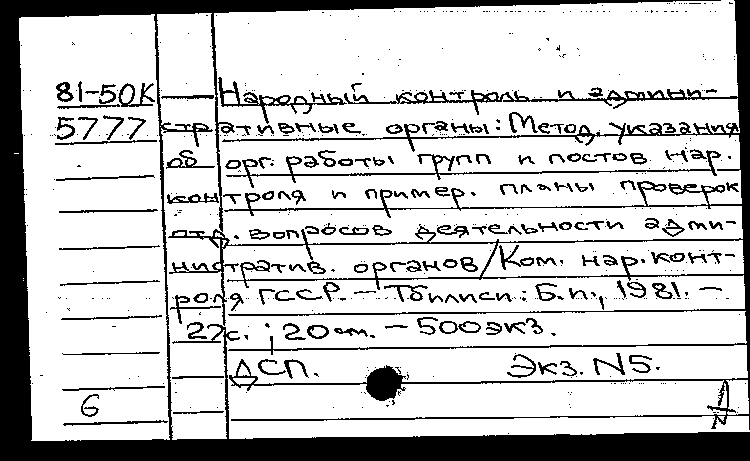 81-50К Народный контроль и админи-
5777 стративные органы: Метод. указания
об орг. работы групп и постов нар.
контроля и пример. планы проверок
отд. вопросов деятельности адми-
нистратив. органов/Ком. нар. конт-
роля ГССР. – Тбилиси: Б.и., 1981. –
27с. ; 20 см. – 500экз.
ДСП. Экз. N5.
6